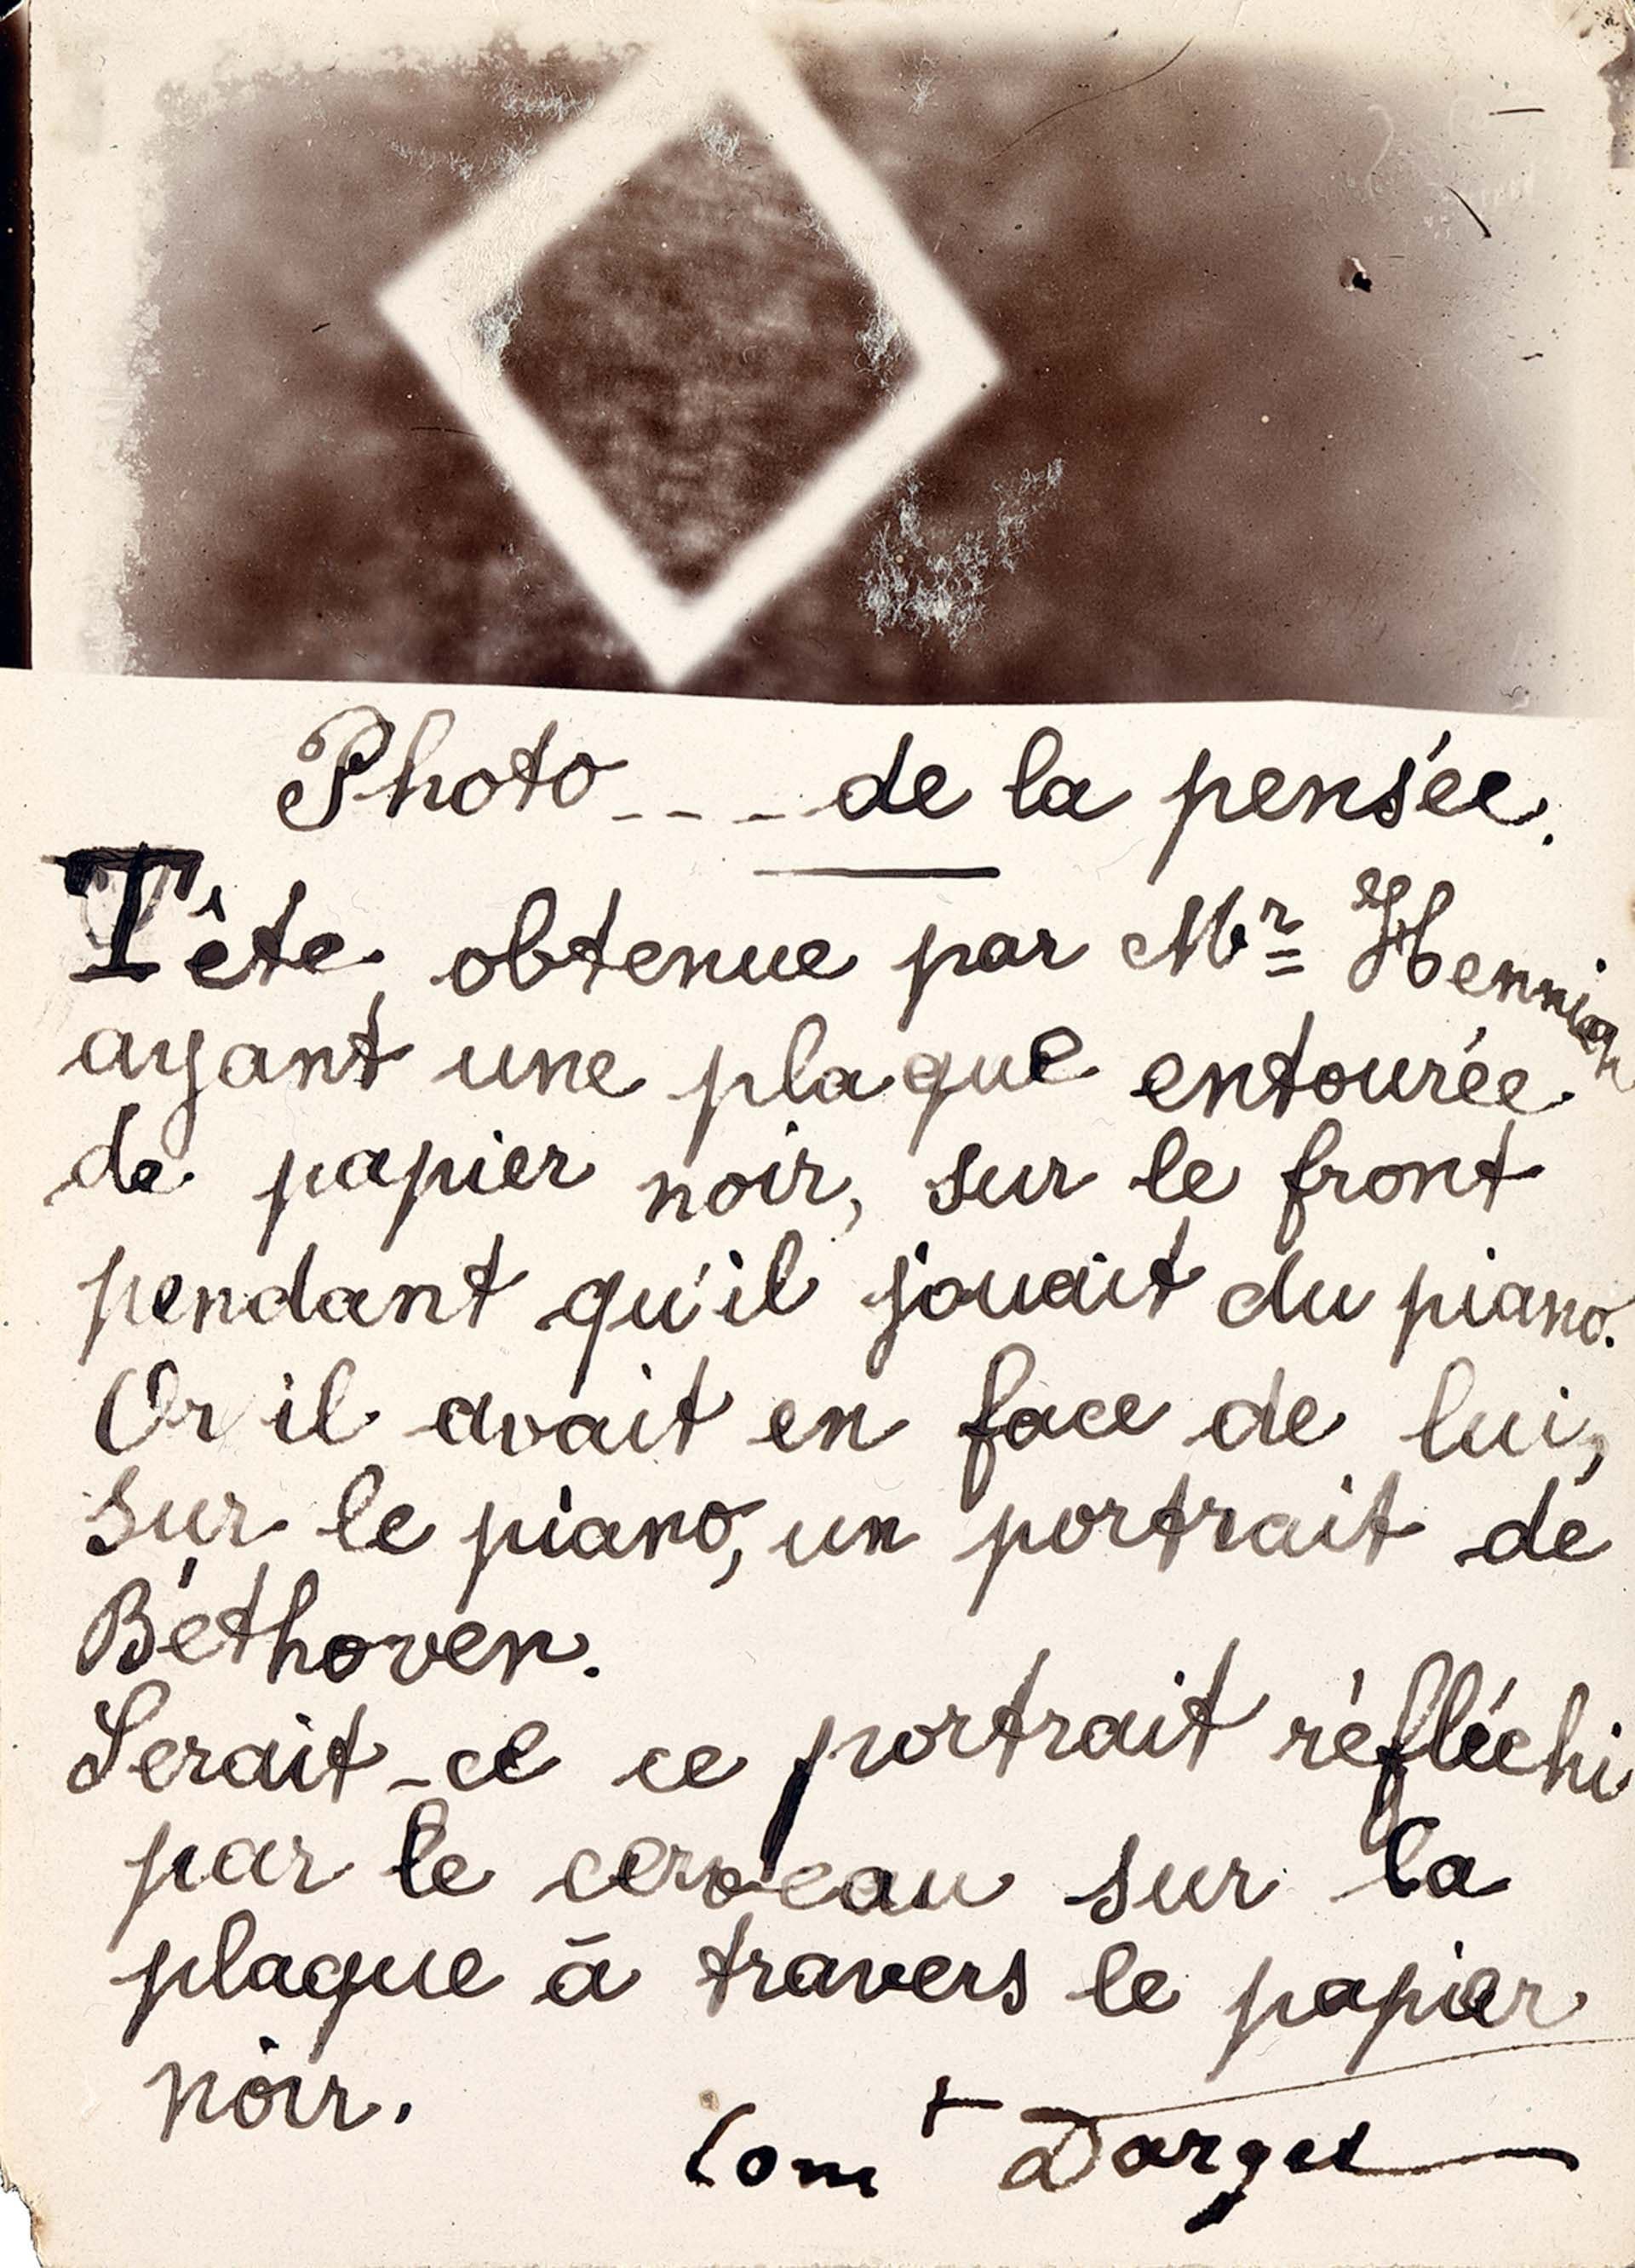 Photo---- de la pensée.
Tête obtenue par Mr Hennique
ayant une plaque entourée
de papier noir, sur le front
pendant qu'il jouait du piano.
Or il avait en face de lui,
sur le piano, un portrait de
Béthoven.
Serait-ce ce portrait réfléchi
par le cerveau sur la
plaque à travers le papier
noir.
Comt Darget